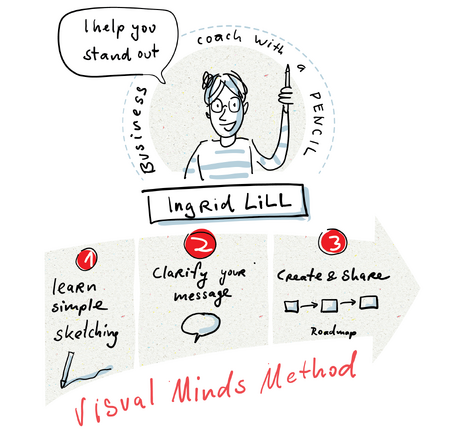 I help you
stand out
Business coach with a PENCIL
IngRid LiLL
1
learn
simple
sketching
2
Clarify your
message
3
Create & Share
Roadmap
Visual Minds Method